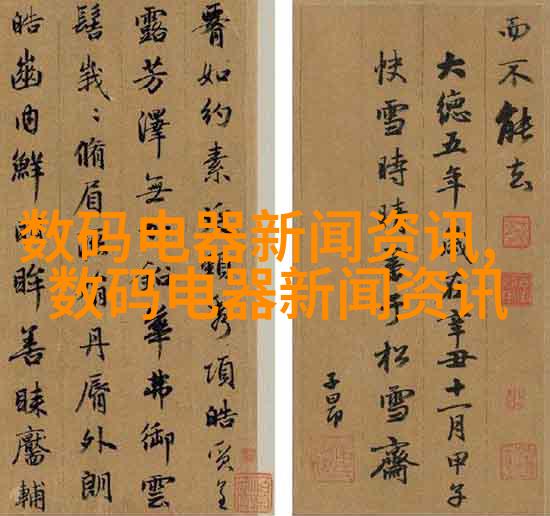 数码电器新闻资讯,
数码电器新闻资讯
如約素 秀項皓質呈
露芳澤無 鉛華弗御雲
髻峩〻脩眉 娟丹脣外朗
皓齒内鮮明眸善睞靨輔
而不能去
大德五年歲在辛丑十一月甲子
快雪時晴書于松雪齋
子昂